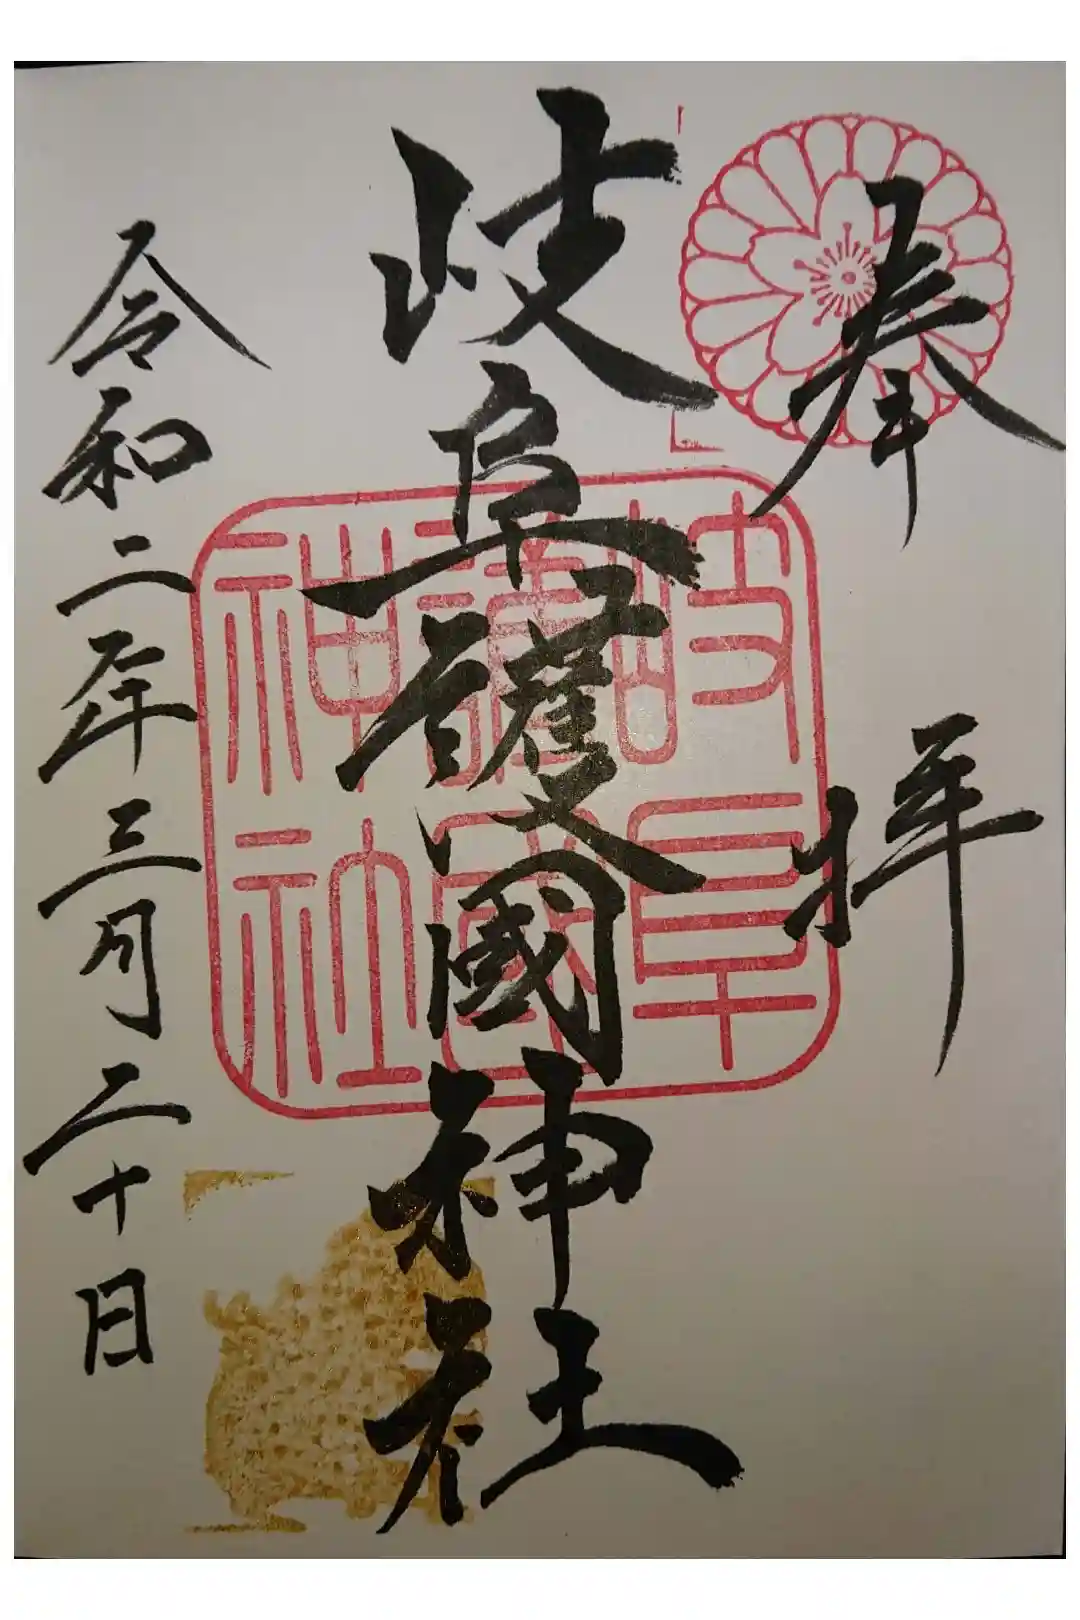 奉拝
岐阜護國神社
岐阜護國神社
令和二年三月二十日